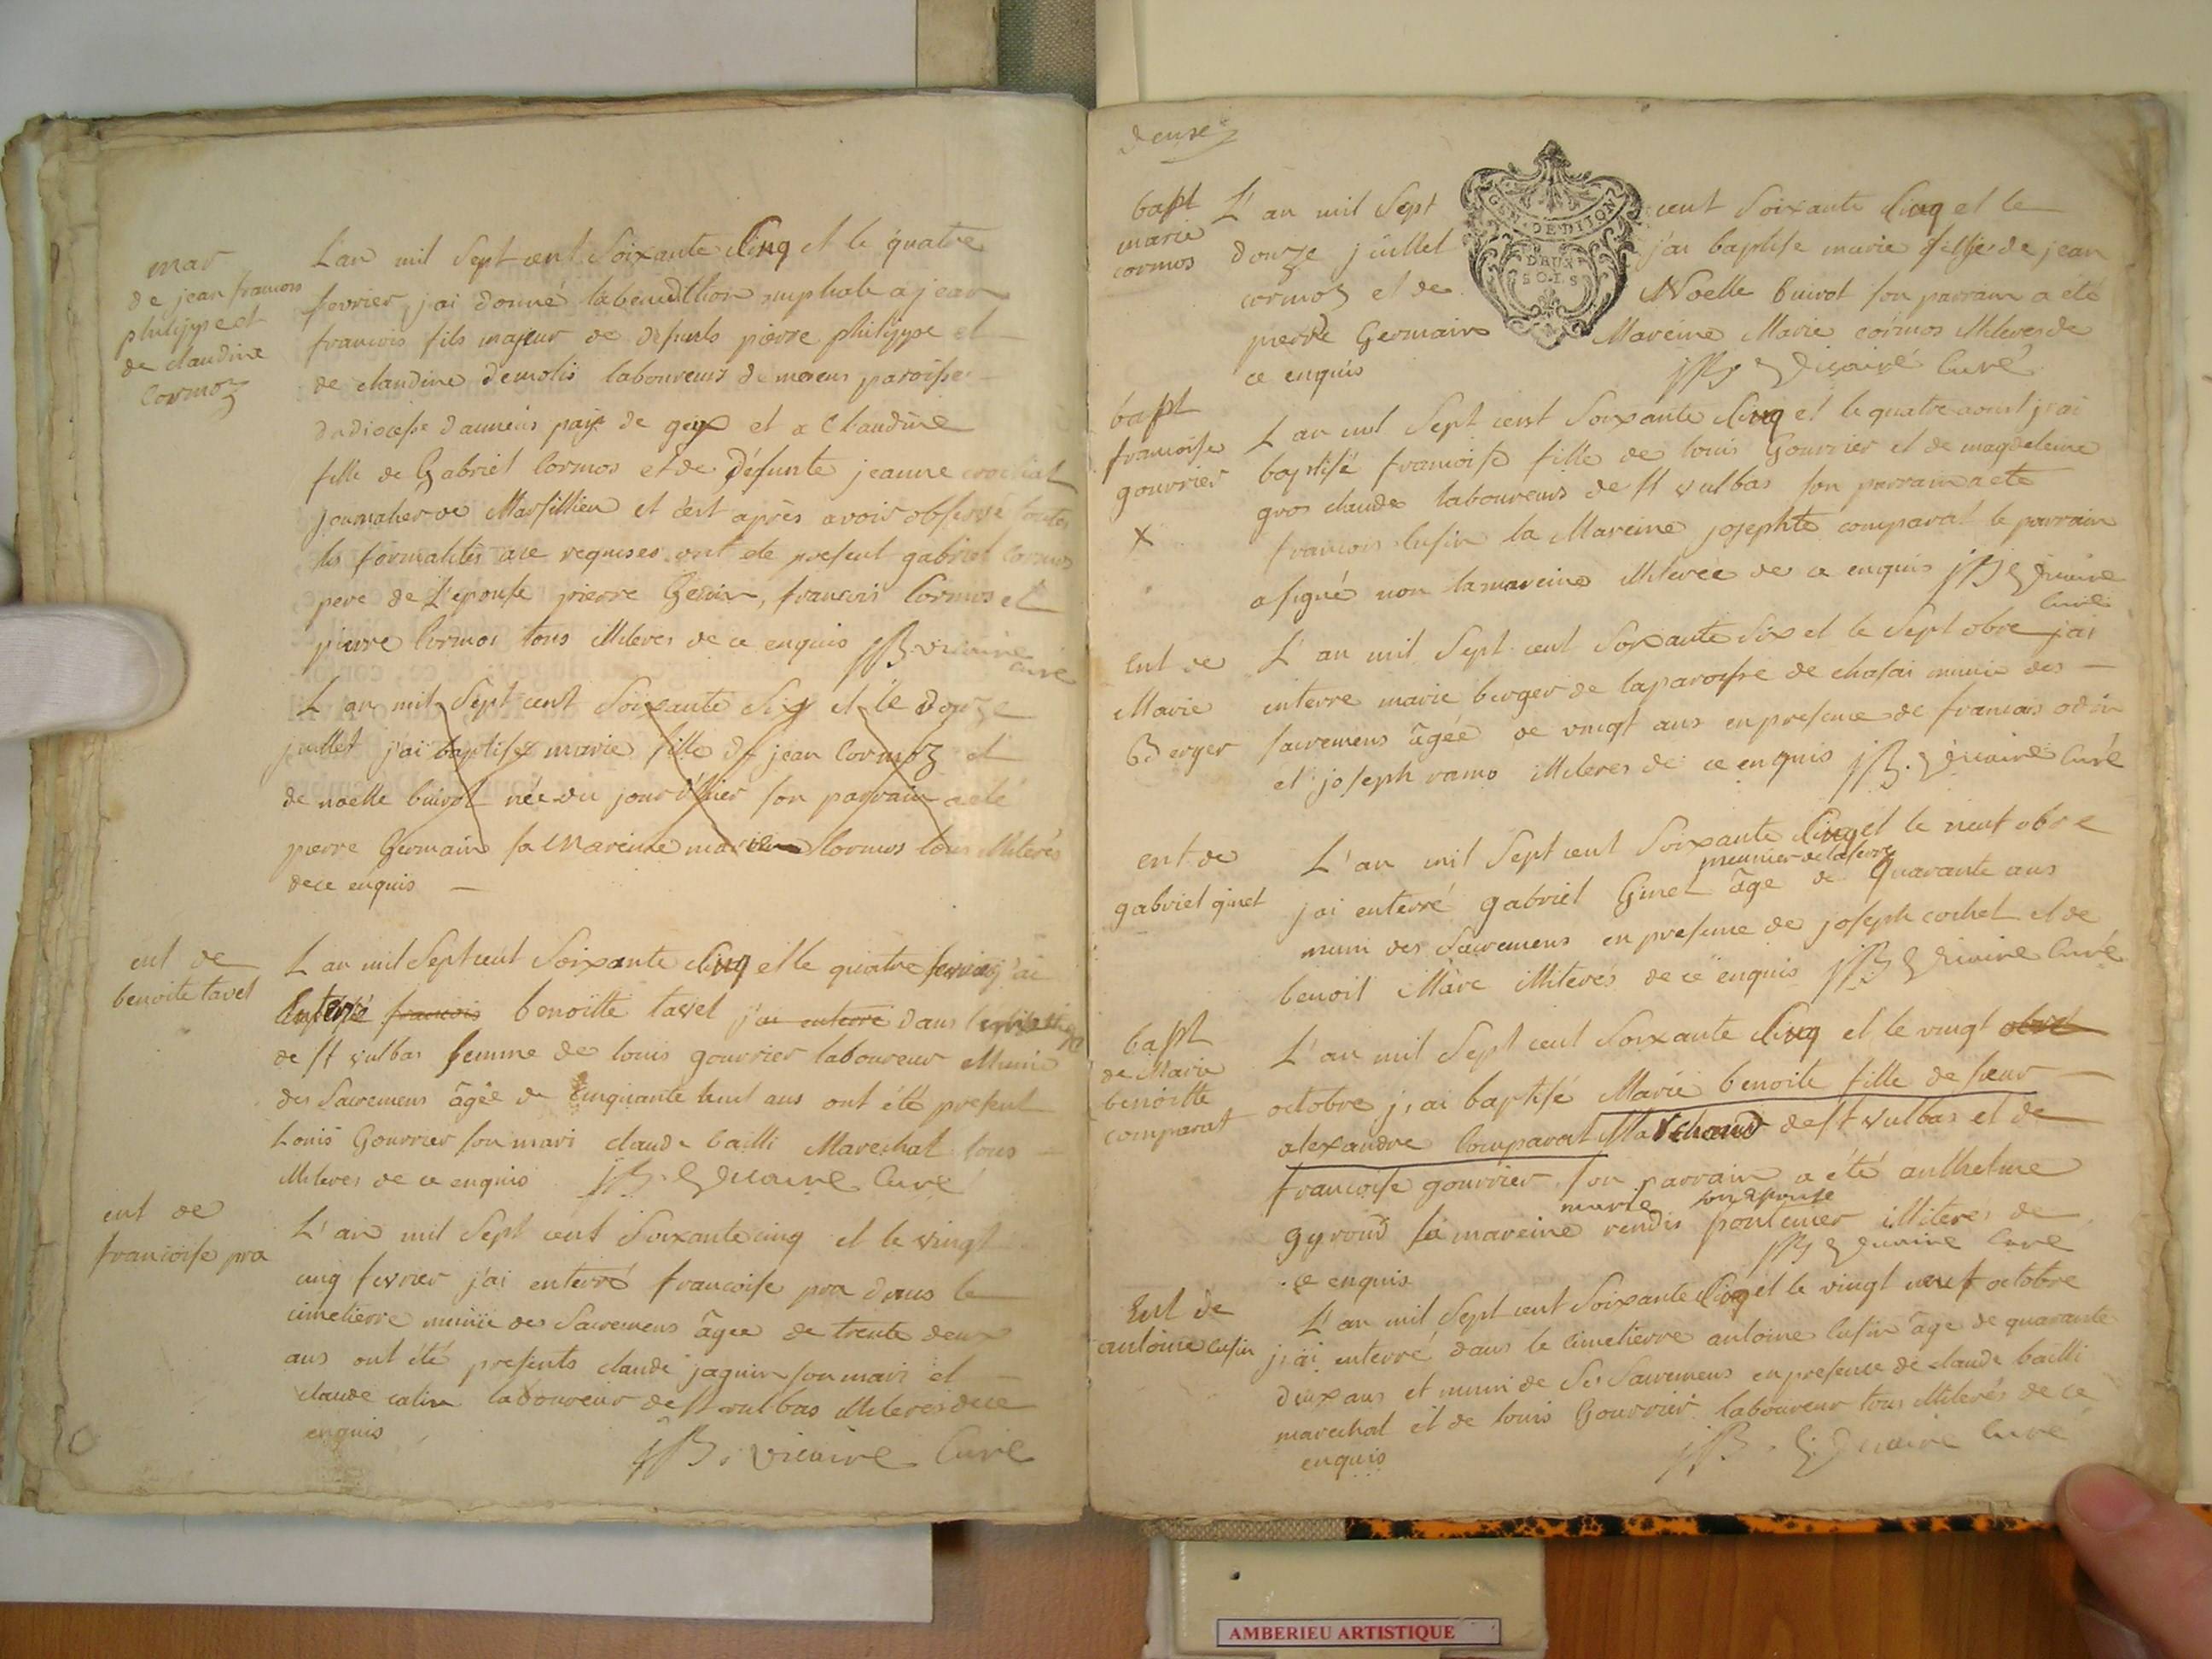 mar
de jean francois
philippe et
de claudine
Cormoz
L'an mil Sept cent Soixante Cinq et le quatre
fevrier, j'ai donné la benediction nuptiale a jean
francois fils majeur de defunts pierre philippe et
de claudine demolis laboureurs de paroisse
du diocesse d'annecis pays de gex et a Claudine
fille de Gabriel Cormos et de Défunte jeanne
journalier de Marsillieu et c'est après avoir observé toutes
les formalités ace requises ont eté present gabriel Cormos
pere de L'epouse pierre francois Cormos et
pierre Cormos tous illiteres de ce enquis JB vicaire
curé
L'an mil Sept cent Soixante Six et le douze
juillet j'ai baptisez marie fille de jean Cormoz et
de noelle buirot née du jour d'hier son parrain a eté
pierre Germain sa Mareine marie Cormos tous illiterés
de ce enquis
ent de
benoite tavel
L'an mil Sept cent Soixante Cinq et le quatre fevrier j'ai
Enterré francois benoitte tavel j'ai enterré dans
de st vulbas femme de louis gourrier laboureur Munie
des Sacremens âgée de Cinquante huit ans ont été present
Louis Gourrier son mari claude bailli Marechal tous
illiteres de ce enquis JB. Vicaire Curé
ent de
francoise pra
L'an mil Sept cent Soixante cinq et le vingt
cinq fevrier j'ai enterré francoise pra dans le
cimetierre munie des Sacremens âgee de trente deux
ans ont été presents claude jaquin son mari et
claude calin laboureur de st vulbas illiteres de ce
enquis
JB. vicaire Curé
deuse
GEN. DE DIJON
DEUX
SOLS
bapt
marie
cormos
L'an mil Sept cent Soixante Cinq et le
douze juillet j'ai baptise marie fille de jean
cormoz et de Noelle buirot son parrain a été
pierre Germain Mareine Marie cormos illiteres de
ce enquis JB Vicaire Curé
bapt
francoise
gourrier
X
L'an mil Sept cent Soixante Cinq et le quatre aoust j'ai
baptisé francoise fille de louis Gourrier et de magdeleine
gros claude laboureurs de st vulbas son parrain a eté
francois Cusin la Mareine josephte comparat le parrain
a signé non la mareine illiteree de ce enquis JB Vicaire
Curé
Ent de
Marie
Berger
L'an mil Sept cent Soixante Six et le Sept obre j'ai
enterre marie berger de la paroisse de chasai munie des
sacremens âgée de vingt ans en presence de francois odin
et joseph ramo illiteres de ce enquis JB. Vicaire Curé
ent de
gabriel ginet
L'an mil Sept cent Soixante Cinq et le neuf obre
meunier de la serre
j'ai enterré gabriel Ginet âge de Quarante ans
muni des Sacremens en presence de joseph cochet et de
benoit Mare illiterés de ce enquis JB Vicaire Curé
bapt
de Marie
benoitte
comparat
L'an mil Sept cent Soixante Cinq et le vingt obre
octobre j'ai baptisé Marie benoite fille de sieur
alexandre Comparat Marchand de st vulbas et de
francoise gourrier son parrain a été anthelme
marie son epouse
gyroud sa mareine rendis pontenier illiteres de
ce enquis JB Vicaire Curé
Ent de
antoine Cusin
L'an mil Sept cent Soixante Cinq et le vingt neuf octobre
j'ai enterré dans le Cimetierre antoine Cusin âge de quarante
deux ans et muni de Ses Sacremens en presence de claude bailli
marechal et de louis Gourrier laboureur tous illiterés de ce
enquis JB. Vicaire Curé
AMBERIEU ARTISTIQUE